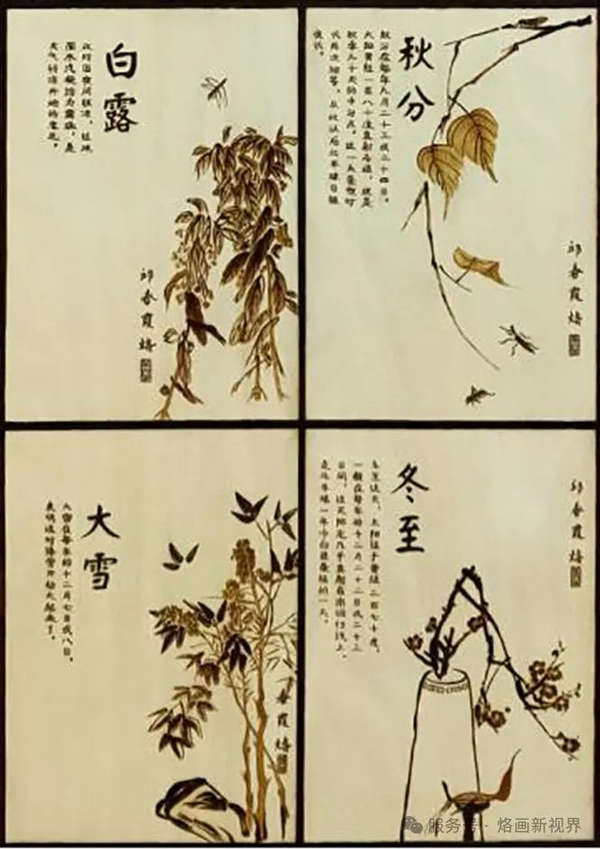 白露
天气转凉开始的意思。
邱春霞烙
秋分
秋分在每年九月二十三或二十四日。
太阳黄经一百八十度直射赤道，
秋季九十天的中分点。这一天昼夜时
长再次相等，
夜长。
邱春霞烙
大雪
大雪在每年的十二月七日或八日，
表明这时降雪开始大起来了。
春霞烙
冬至
冬至这天，太阳位于黄经二百七十度，
一般在每年的十二月二十二日或二十三
日间，这天阳光几乎直射南回归线上，
是北半球一年中白昼最短的一天。
邱春霞烙
服务号 · 烙画新视界